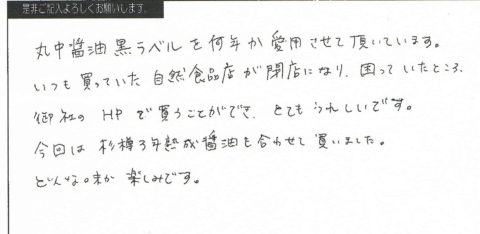 是非ご記入よろしくお願いします。
丸中醤油黒ラベルを何年か愛用させて頂いています。
いつも買っていた自然食品店が閉店になり、困っていたところ、
御社のHPで買うことができ、とてもうれしいです。
今回は杉樽3年熟成醤油を合わせて買いました。
どんな味か楽しみです。